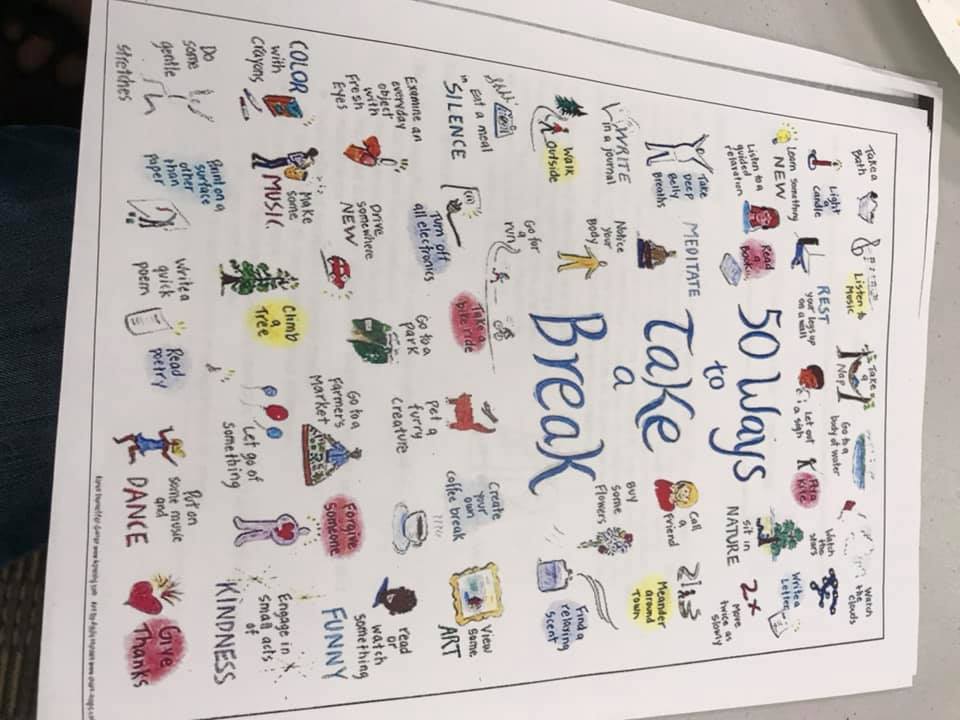 Take a
Bath
Listen to
Music
Take
a
Nap
Go to a
body of water
Watch
the clouds
Light
a
candle
Learn something
NEW
REST
your legs up
on a wall
Let out
a sigh
Fly a
Kite
Watch
the
stars
Listen to a
guided
relaxation
Read
a
Book
50 Ways
to
Take
a
Break
sit in
NATURE
Write a
Letter
2x
Move
twice as
slowly
Take
Deep
Belly
Breaths
MEDITATE
Call
a
Friend
Meander
around
Town
WRITE
in a journal
Notice
your
Body
Buy
some
Flowers
Find a
relaxing
scent
Walk
outside
Go for
a
run
Eat a meal
in SILENCE
Turn off
all electronics
Take a
bike ride
Pet a
furry
creature
Create
your
own
coffee break
View
some
ART
Examine an
everyday
object
with
Fresh
Eyes
Drive
somewhere
NEW
Go to a
park
Go to a
Farmer's
Market
Forgive
Someone
Read
or
watch
something
FUNNY
COLOR
with
Crayons
Make
some
MUSIC
Climb
a
Tree
Let go of
something
Engage in
small acts
of
KINDNESS
Do
some
gentle
stretches
Paint on a
surface
other
than
paper
Write a
quick
poem
Read
poetry
Put on
some music
and
DANCE
Give
Thanks